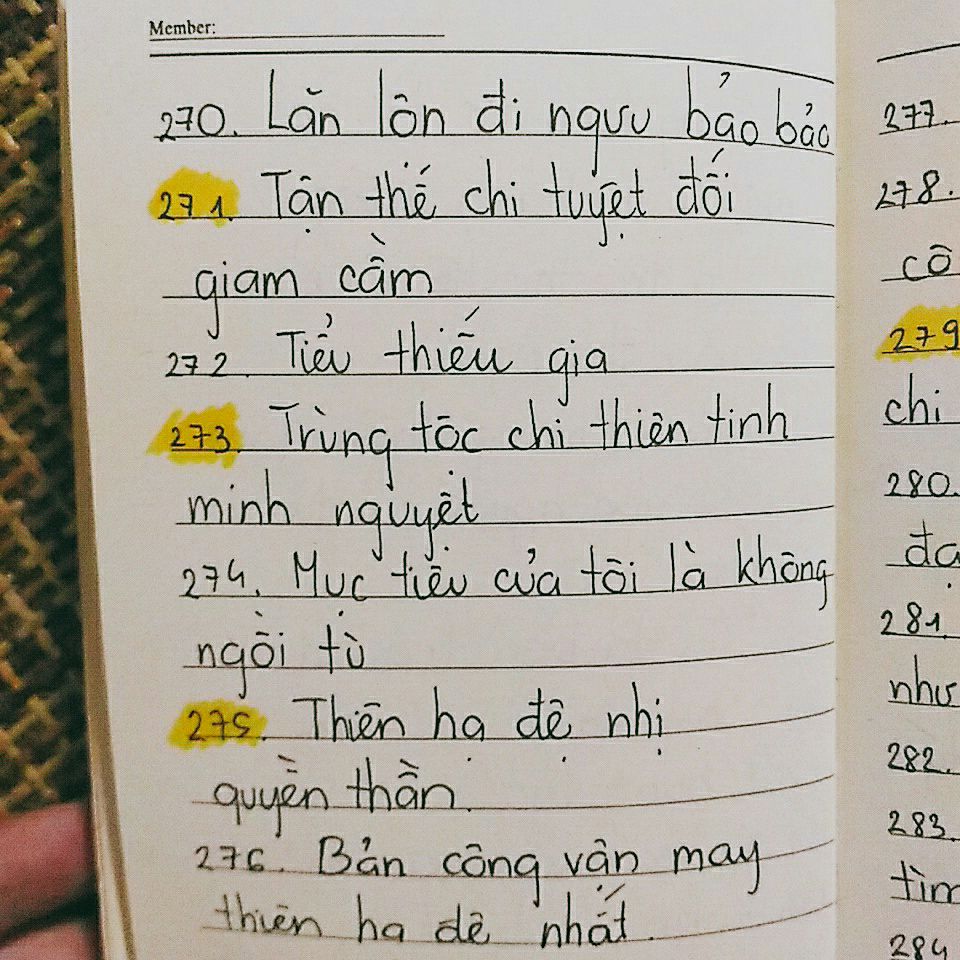 Member:
270. Lăn lôn đi ngưu bảo bảo
271. Tận thế chi tuyệt đối
giam cầm
272. Tiểu thiếu gia
273. Trùng tộc chi thiên tinh
minh nguyệt
274. Mục tiêu của tôi là không
ngồi tù
275. Thiên hạ đệ nhị
quyền thần.
276. Bản công vận may
thiên hạ đệ nhất.
277.
278.
cô
279
chi
280.
281.
như
282.
283.
tìm
284